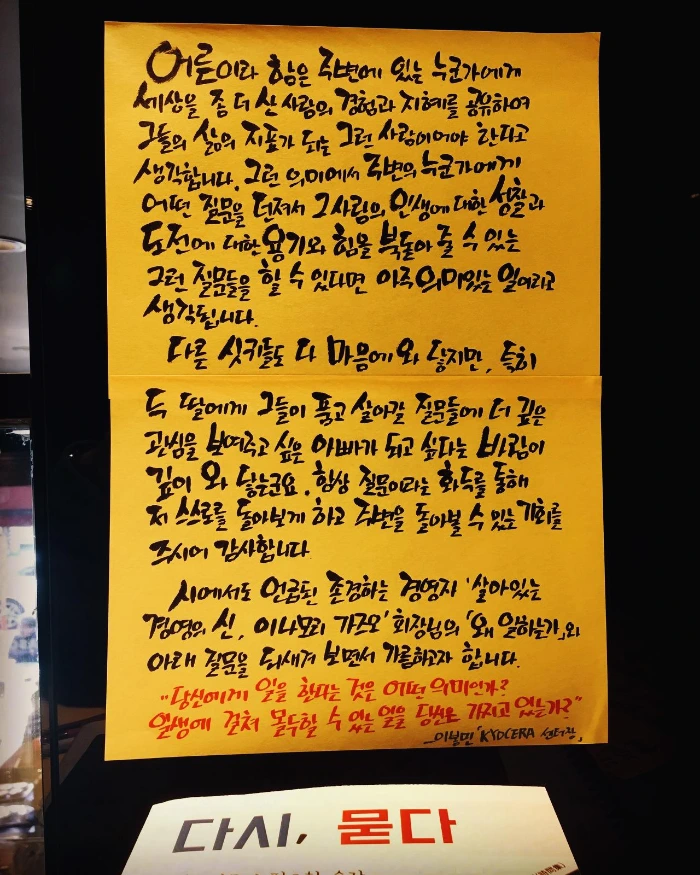 어른이라 함은 주변에 있는 누군가에게
세상을 좀 더 산 사람의 경험과 지혜를 공유하여
그들의 삶의 지표가 되는 그런 사람이어야 한다고
생각합니다. 그런 의미에서 주변의 누군가에게
어떤 질문을 던져서 그 사람의 인생에 대한 성찰과
도전에 대한 용기와 힘을 북돋아 줄 수 있는
그런 질문들을 할 수 있다면 아주 의미있는 일이라고
생각됩니다.
다른 싯귀들도 다 마음에 와 닿지만, 특히
두 딸에게 그들이 품고 살아갈 질문들에 더 깊은
관심을 보여주고 싶은 아빠가 되고 싶다는 바람이
깊이 와 닿는군요. 항상 질문이라는 화두를 통해
저 스스로를 돌아보게 하고 주변을 돌아볼 수 있는 기회를
주시어 감사합니다.
시에서도 언급된 존경하는 경영자 '살아있는
경영의 신, 이나모리 가즈오' 회장님의 「왜 일하는가」와
아래 질문을 되새겨 보면서 가름하고자 합니다.
"당신에게 일을 한다는 것은 어떤 의미인가?
일생에 걸쳐 몰두할 수 있는 일을 당신은 가지고 있는가?"
_이봉민 「KYOCERA 센터장」
다시, 묻다